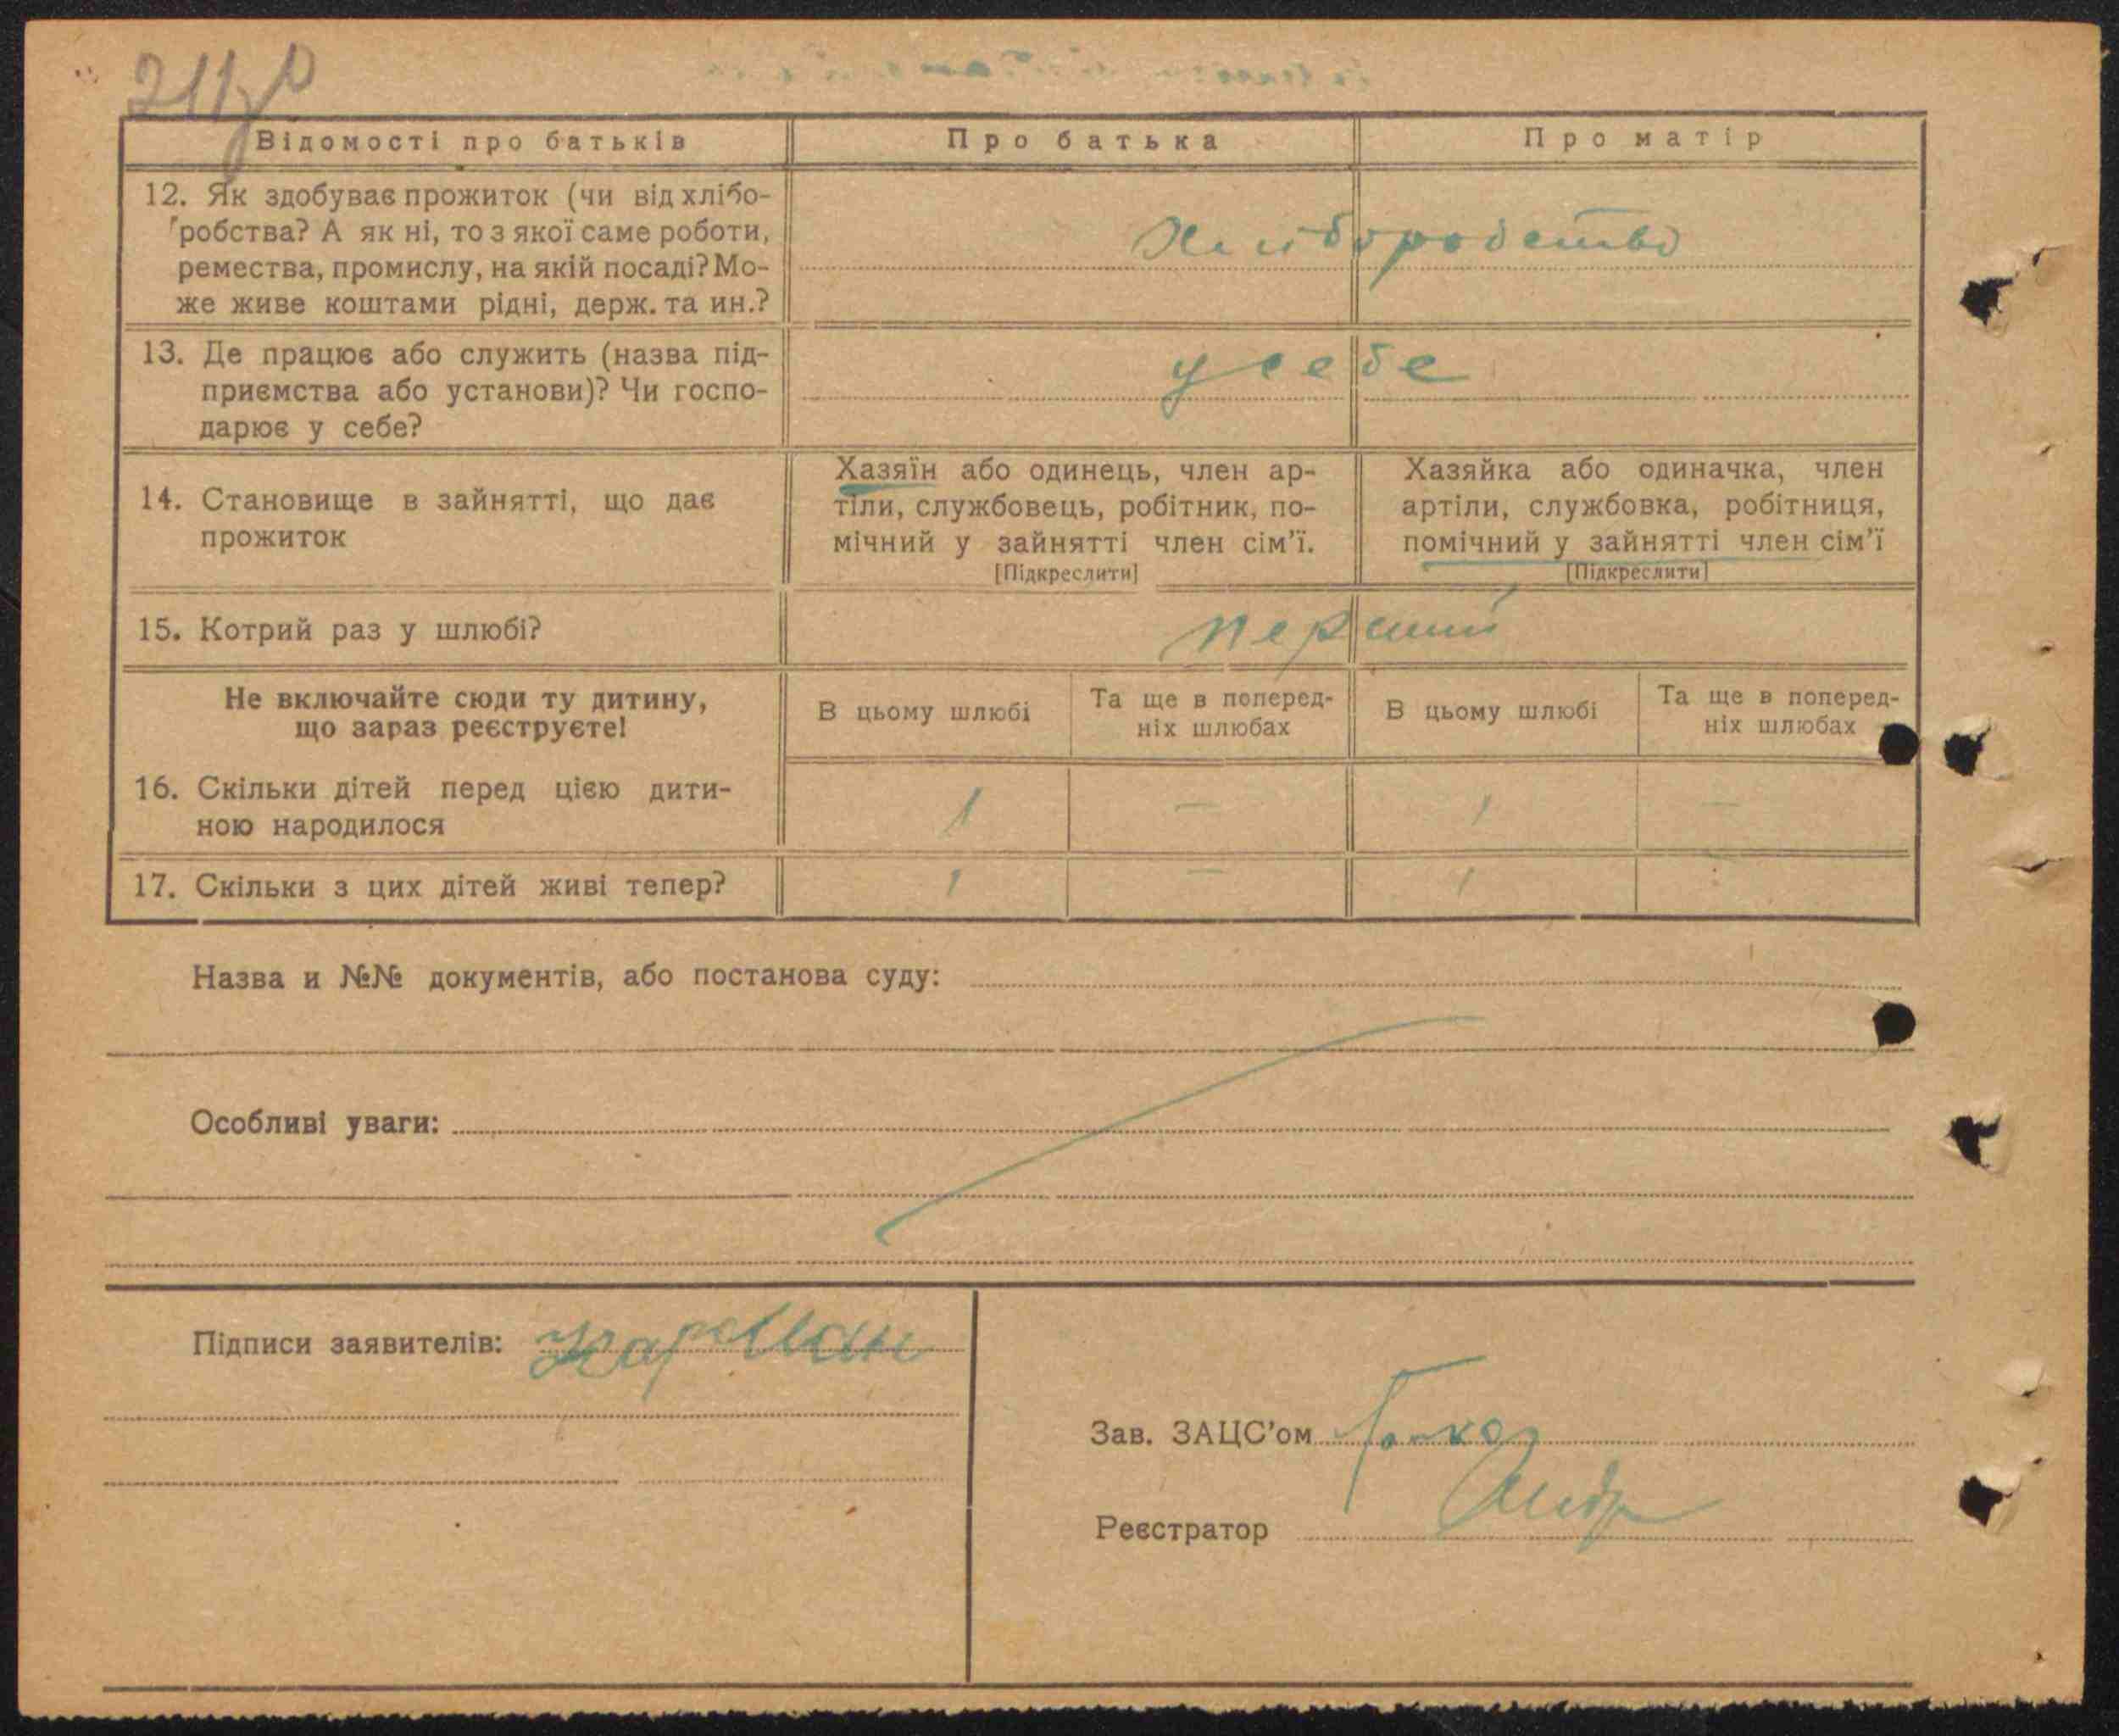 Відомості про батьків Про батька Про матір
12. Як здобуває прожиток (чи від хлібо-
робства? А як ні, то з якої саме роботи,
ремества, промислу, на якій посаді? Мо-
же живе коштами рідні, держ. та ин.?
Хліборобство
13. Де працює або служить (назва під-
приємства або установи)? Чи госпо-
дарює у себе?
у себе
14. Становище в зайнятті, що дає
прожиток
Хазяїн або одинець, член ар-
тіли, службовець, робітник, по-
мічний у зайнятті член сім'ї.
[Підкреслити]
Хазяйка або одиначка, член
артіли, службовка, робітниця,
помічний у зайнятті член сім'ї
[Підкреслити]
15. Котрий раз у шлюбі? перший
Не включайте сюди ту дитину,
що зараз реєструєте!
В цьому шлюбі
Та ще в поперед-
ніх шлюбах
В цьому шлюбі
Та ще в поперед-
ніх шлюбах
16. Скільки дітей перед цією дити-
ною народилося
1 — 1 —
17. Скільки з цих дітей живі тепер? 1 — 1
Назва и №№ документів, або постанова суду:
Особливі уваги:
Підписи заявителів:
Зав. ЗАЦС'ом
Реєстратор